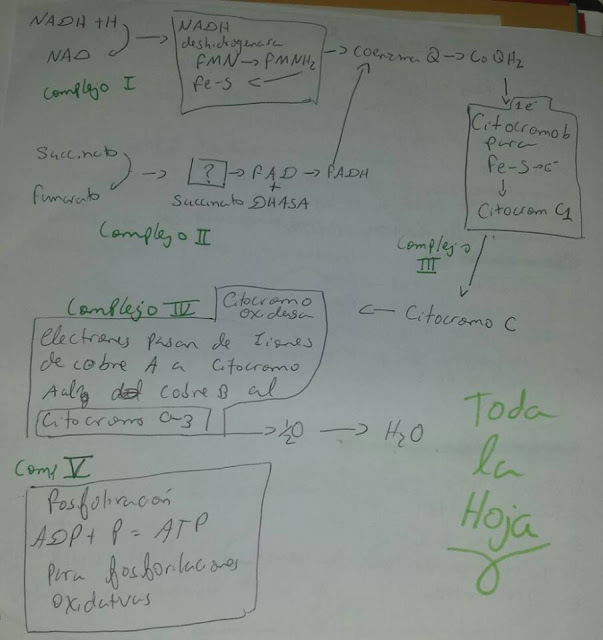 NADH + H
NAD
Complejo I
NADH
deshidrogenasa
FMN → FMNH2
Fe-S ←
→ Coenzima Q → CoQH2
1e-
Citocromo b
para
Fe-S → c-
↓
Citocrom C1
Complejo
III
Succinato
Fumarato
→ ? → FAD → FADH
+
Succinato DHASA
Complejo II
← Citocromo C
Complejo IV
Citocromo
oxidasa
electrones pasan de Iones
de cobre A a Citocromo
cobre B al
Citocromo a-3
→ ½O → H2O
Comp V
Fosfolivación
ADP + P = ATP
para fosforilaciones
oxidatvas
Toda
la
Hoja